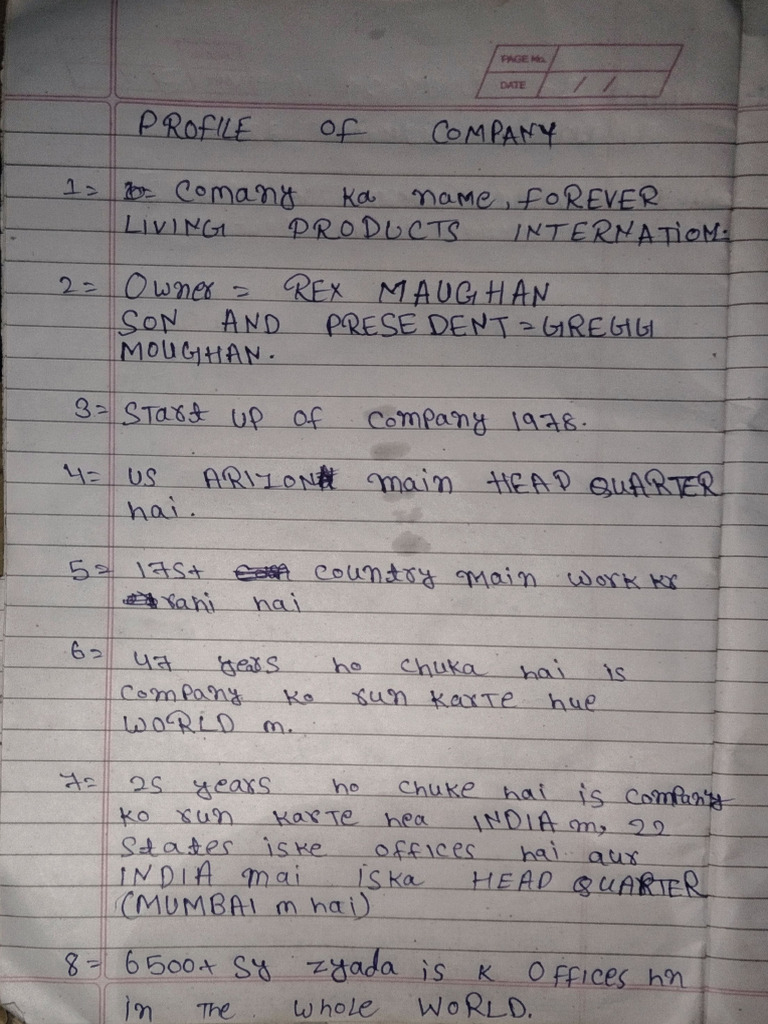 PAGE No.
DATE / /
PROFILE OF COMPANY
1= Comany ka name, FOREVER
LIVING PRODUCTS INTERNATIOM:
2= Owner = REX MAUGHAN
SON AND PRESEDENT = GREGG
MOUGHAN.
3= START UP OF company 1978.
4= US ARIZONA main HEAD QUARTER
hai.
5= 175+ country main work kr
rahi hai
6= 47 years ho chuka hai is
company ko run karte hue
WORLD m.
7= 25 years ho chuke hai is company
ko run karte hea INDIA m, 22
States iske offices hai aur
INDIA mai iska HEAD QUARTER
(MUMBAI m hai)
8= 6500+ sy zyada is k offices hn
in The whole WORLD.